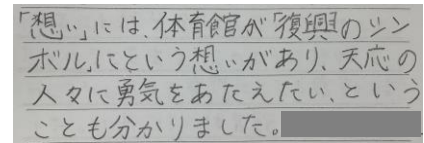 「想い」には、体育館が「復興のシン
ボル」にという想いがあり、天応の
人々に勇気をあたえたい、という
ことも分かりました。